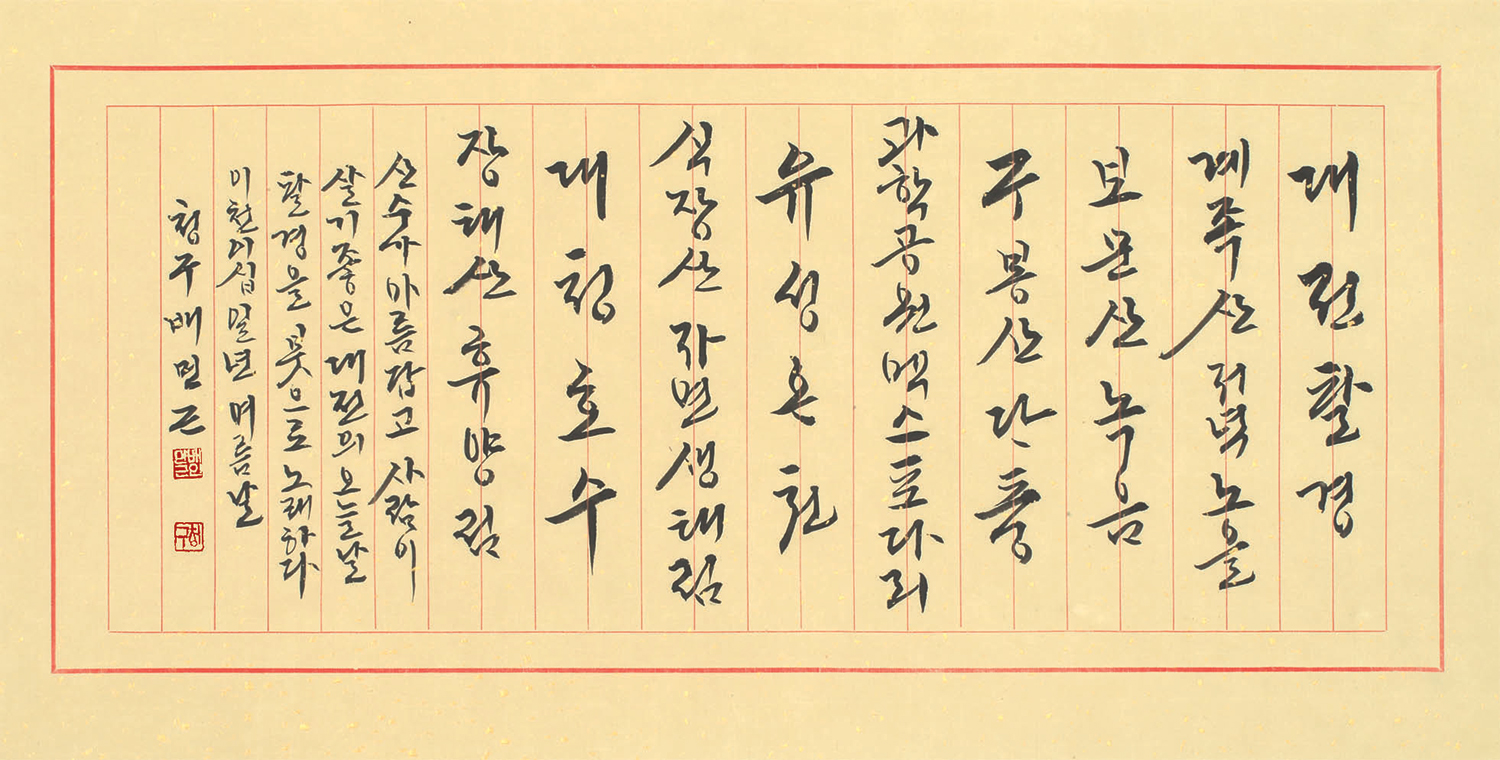 대전팔경
계족산 저녁노을
보문산 녹음
구봉산 단풍
과학공원 엑스포다리
유성온천
식장산 자연생태림
대청호수
장태산 휴양림
산수가 아름답고 사람이
살기좋은 대전의 오늘날
팔경을 붓으로 노래하다
이천이십일년 여름날
청구 배민근